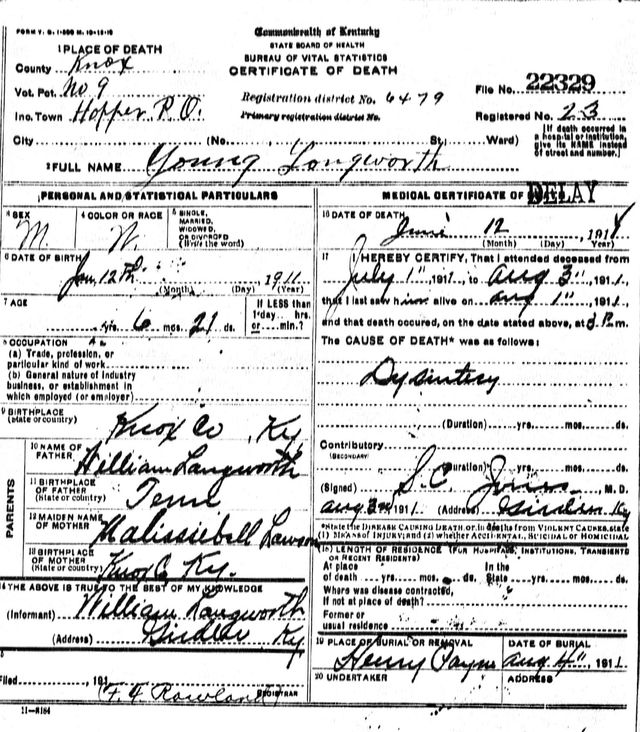 FORM V. S. 1-500 M. 10-15-10
Commonwealth of Kentucky
STATE BOARD OF HEALTH
BUREAU OF VITAL STATISTICS
CERTIFICATE OF DEATH
1 PLACE OF DEATH
County Knox
Vot. Pct. No 9
Inc. Town Hopper P.O.
Registration district No. 6479
Primary registration district No.
File No. 22329
Registered No. 23
City (No. St. Ward)
[If death occurred in a hospital or institution, give its NAME instead of street and number.]
2 FULL NAME Young Longworth
PERSONAL AND STATISTICAL PARTICULARS
3 SEX
M.
4 COLOR OR RACE
W.
5 SINGLE, MARRIED, WIDOWED, OR DIVORCED (Write the word)
6 DATE OF BIRTH
Jan 12th 1911
(Month) (Day) (Year)
7 AGE
yrs. 6 mos. 21 ds.
If LESS than 1 day hrs. or min.?
8 OCCUPATION
(a) Trade, profession, or particular kind of work
(b) General nature of Industry business, or establishment in which employed (or employer)
9 BIRTHPLACE (state or country)
Knox Co, Ky
PARENTS
10 NAME OF FATHER
William Langworth
11 BIRTHPLACE OF FATHER (State or country)
Tenn
12 MAIDEN NAME OF MOTHER
Malissiebell Lawson
13 BIRTHPLACE OF MOTHER (State or country)
Knox Co Ky.
14 THE ABOVE IS TRUE TO THE BEST OF MY KNOWLEDGE
(Informant) William Langworth
(Address) Ky
Filed 191
F. J. Rowland
REGISTRAR
11-8184
MEDICAL CERTIFICATE OF
DELAY
16 DATE OF DEATH
June 12 191
(Month) (Day) (Year)
17 I HEREBY CERTIFY, That I attended deceased from
July 1", 1911 to Aug 3", 1911,
that I last saw him alive on Aug 1", 1911,
and that death occured, on the date stated above, at P.m.
The CAUSE OF DEATH* was as follows:
Dysintery
(Duration) yrs. mos. ds.
Contributory
(SECONDARY)
(Duration) yrs. mos. ds.
(Signed) S. C. Jones, M. D.
Aug 3rd 1911 (Address) Ky
*State the DISEASE CAUSING DEATH, or, in deaths from VIOLENT CAUSES, state (1) MEANS OF INJURY; and (2) whether ACCIDENTAL, SUICIDAL or HOMICIDAL
18 LENGTH OF RESIDENCE (FOR HOSPITALS, INSTITUTIONS, TRANSIENTS OR RECENT RESIDENTS)
At place of death yrs. mos. ds. In the State yrs. mos. ds.
Where was disease contracted, If not at place of death?
Former or usual residence
19 PLACE OF BURIAL OR REMOVAL
Henry Payne
DATE OF BURIAL
Aug 4", 1911
20 UNDERTAKER
ADDRESS